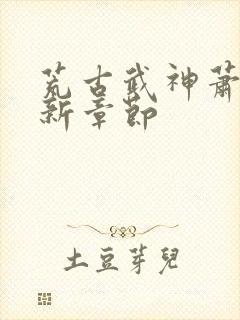 荒古武神蕭
新章節
土豆芽兒